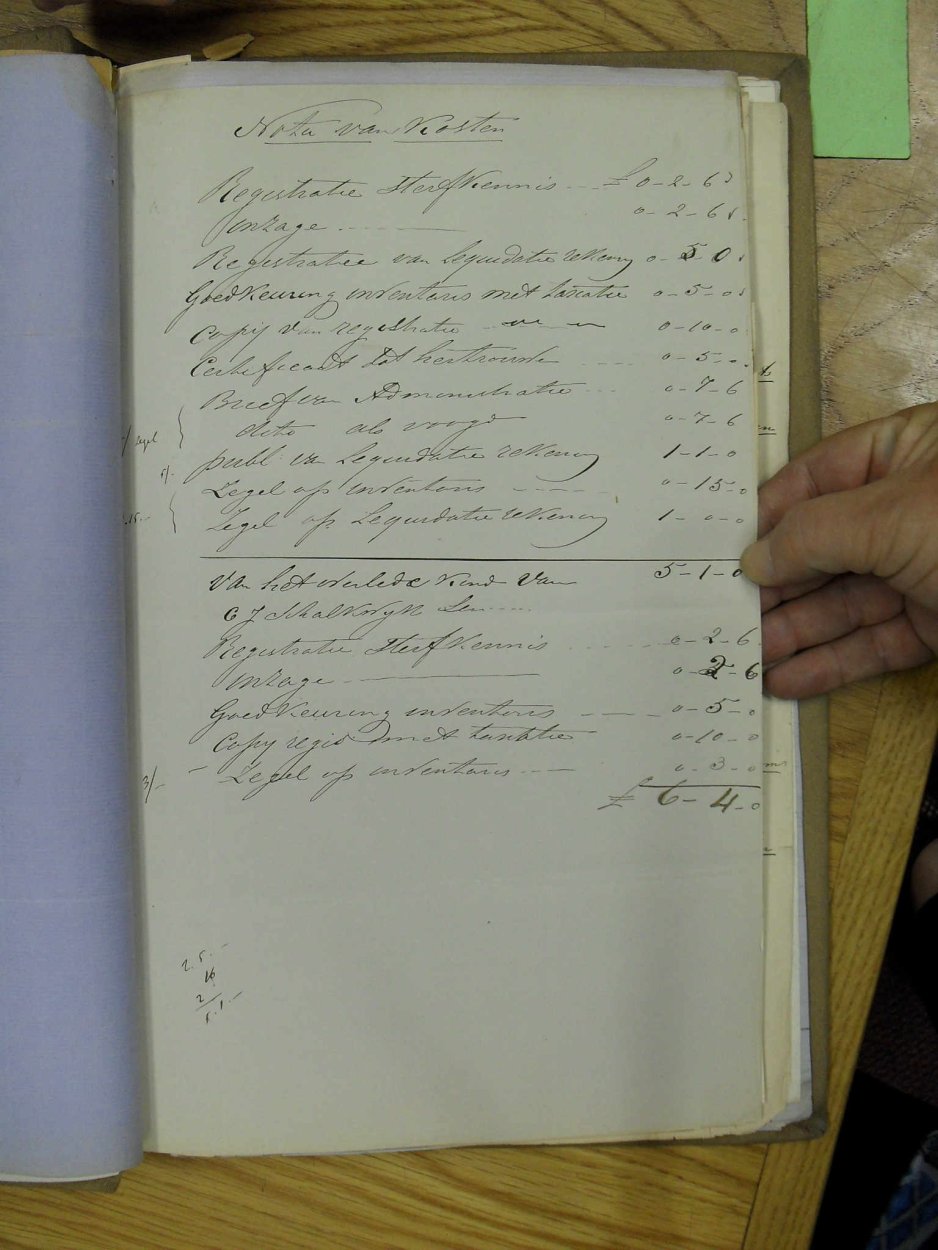 Nota van Kosten
Registratie Sterfkennis - - - £ 0-2-6
Inzage - - - - 0-2-6
Registratie van Lequidatie rekening 0-5-0
Goedkeuring inventaris met taxatie 0-5-0
Copij van registratie 0-10-0
Certificaat tot hertrouwe - - - - 0-5-0
Brief van Administratie - - - 0-7-6
dito als voogd 0-7-6
/ zegel
publ: van Lequidatie rekening 1-1-0
5/-
Zegel op inventaris - - - - - 0-15-0
Zegel op Lequidatie rekening 1-0-0
.15.-
5-1-0
Van het overlede kind van
C J Schalkwyk Sen - - - -
Registratie Sterfkennis - - - - - 0-2-6
Inzage - 0-2-6
Goedkeuring inventaris - - - 0-5-0
Copy regis met taxatie 0-10-0
3/- - Zegel op inventaris - - - 0-3-0
£ 6-4-0
2.5.-
16
2/-
5.1.-